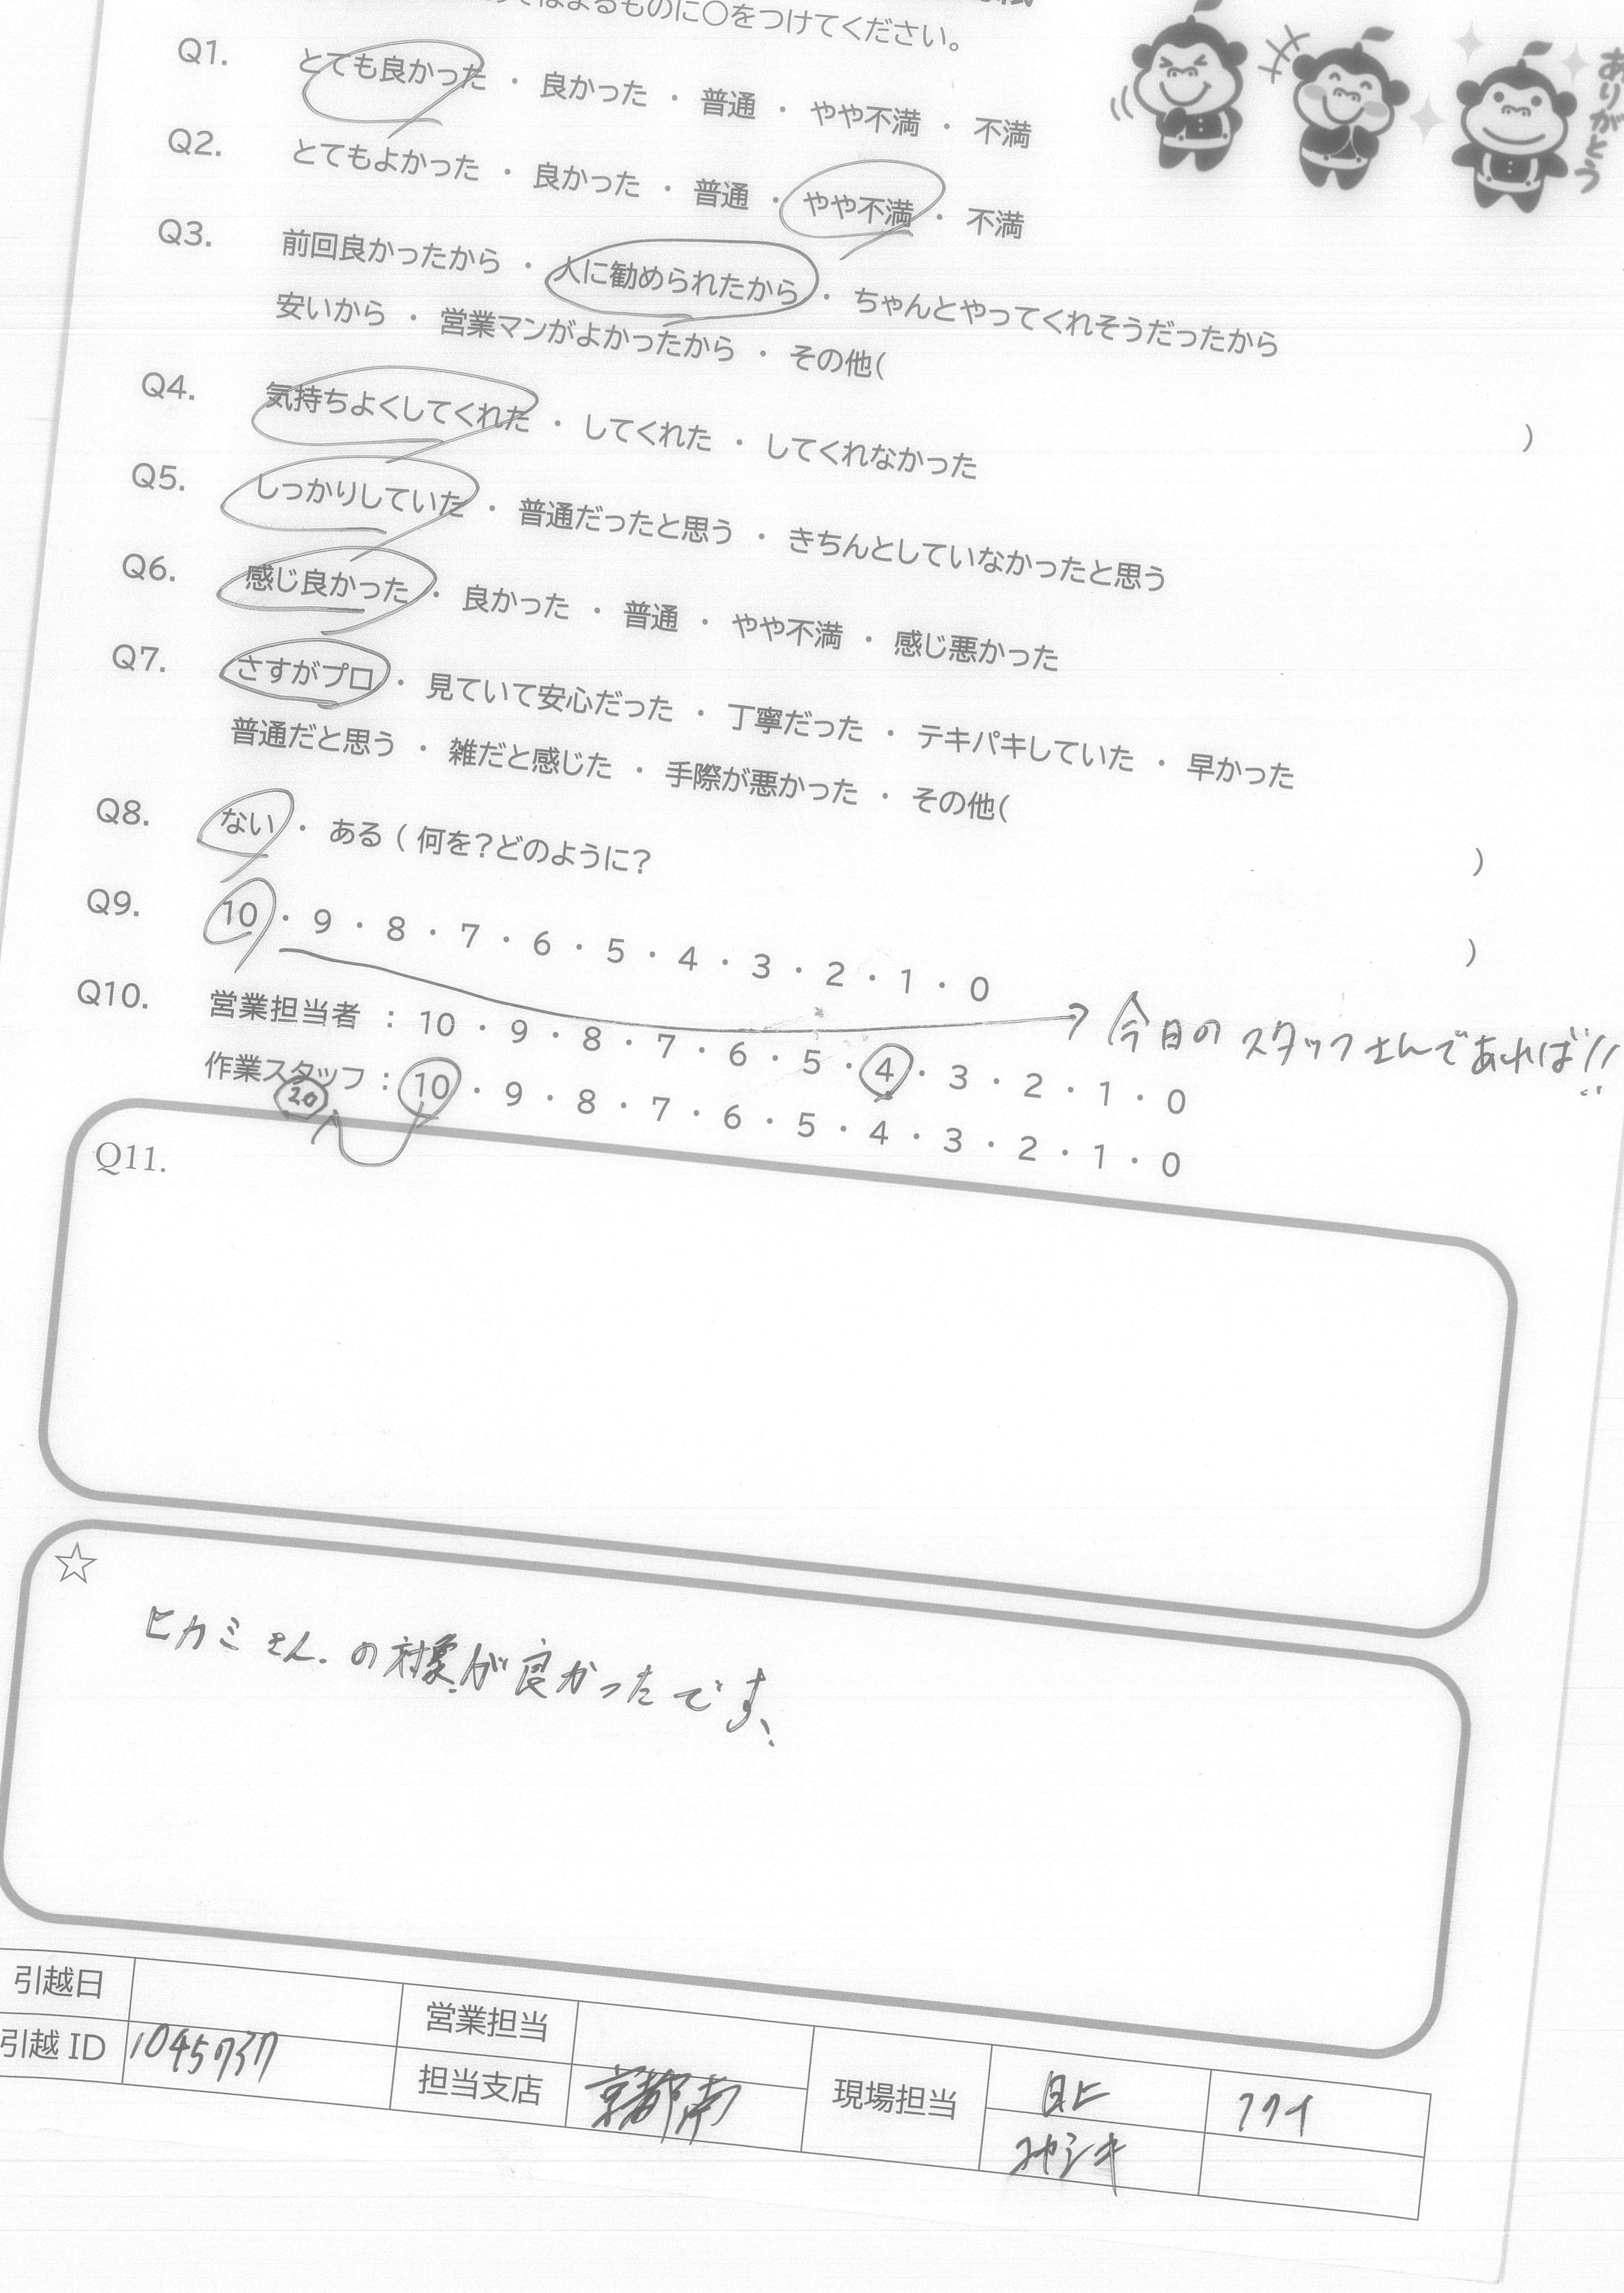 はまるものに○をつけてください。
ありがとう
Q1. とても良かった ・ 良かった ・ 普通 ・ やや不満 ・ 不満
Q2. とてもよかった ・ 良かった ・ 普通 ・ やや不満 ・ 不満
Q3. 前回良かったから ・ 人に勧められたから ・ ちゃんとやってくれそうだったから
安いから ・ 営業マンがよかったから ・ その他( )
Q4. 気持ちよくしてくれた ・ してくれた ・ してくれなかった
Q5. しっかりしていた ・ 普通だったと思う ・ きちんとしていなかったと思う
Q6. 感じ良かった ・ 良かった ・ 普通 ・ やや不満 ・ 感じ悪かった
Q7. さすがプロ ・ 見ていて安心だった ・ 丁寧だった ・ テキパキしていた ・ 早かった
普通だと思う ・ 雑だと感じた ・ 手際が悪かった ・ その他( )
Q8. ない ・ ある ( 何を?どのように? )
Q9. 10 ・ 9 ・ 8 ・ 7 ・ 6 ・ 5 ・ 4 ・ 3 ・ 2 ・ 1 ・ 0
→ 今日の スタッフさんであれば!!
Q10. 営業担当者 : 10 ・ 9 ・ 8 ・ 7 ・ 6 ・ 5 ・ 4 ・ 3 ・ 2 ・ 1 ・ 0
作業スタッフ : 10 ・ 9 ・ 8 ・ 7 ・ 6 ・ 5 ・ 4 ・ 3 ・ 2 ・ 1 ・ 0
20
Q11.
☆
ヒカミさん.の対象が良かったです、
引越日 営業担当
引越 ID 1045737 担当支店 京都南 現場担当
フクイ
コヤシキ